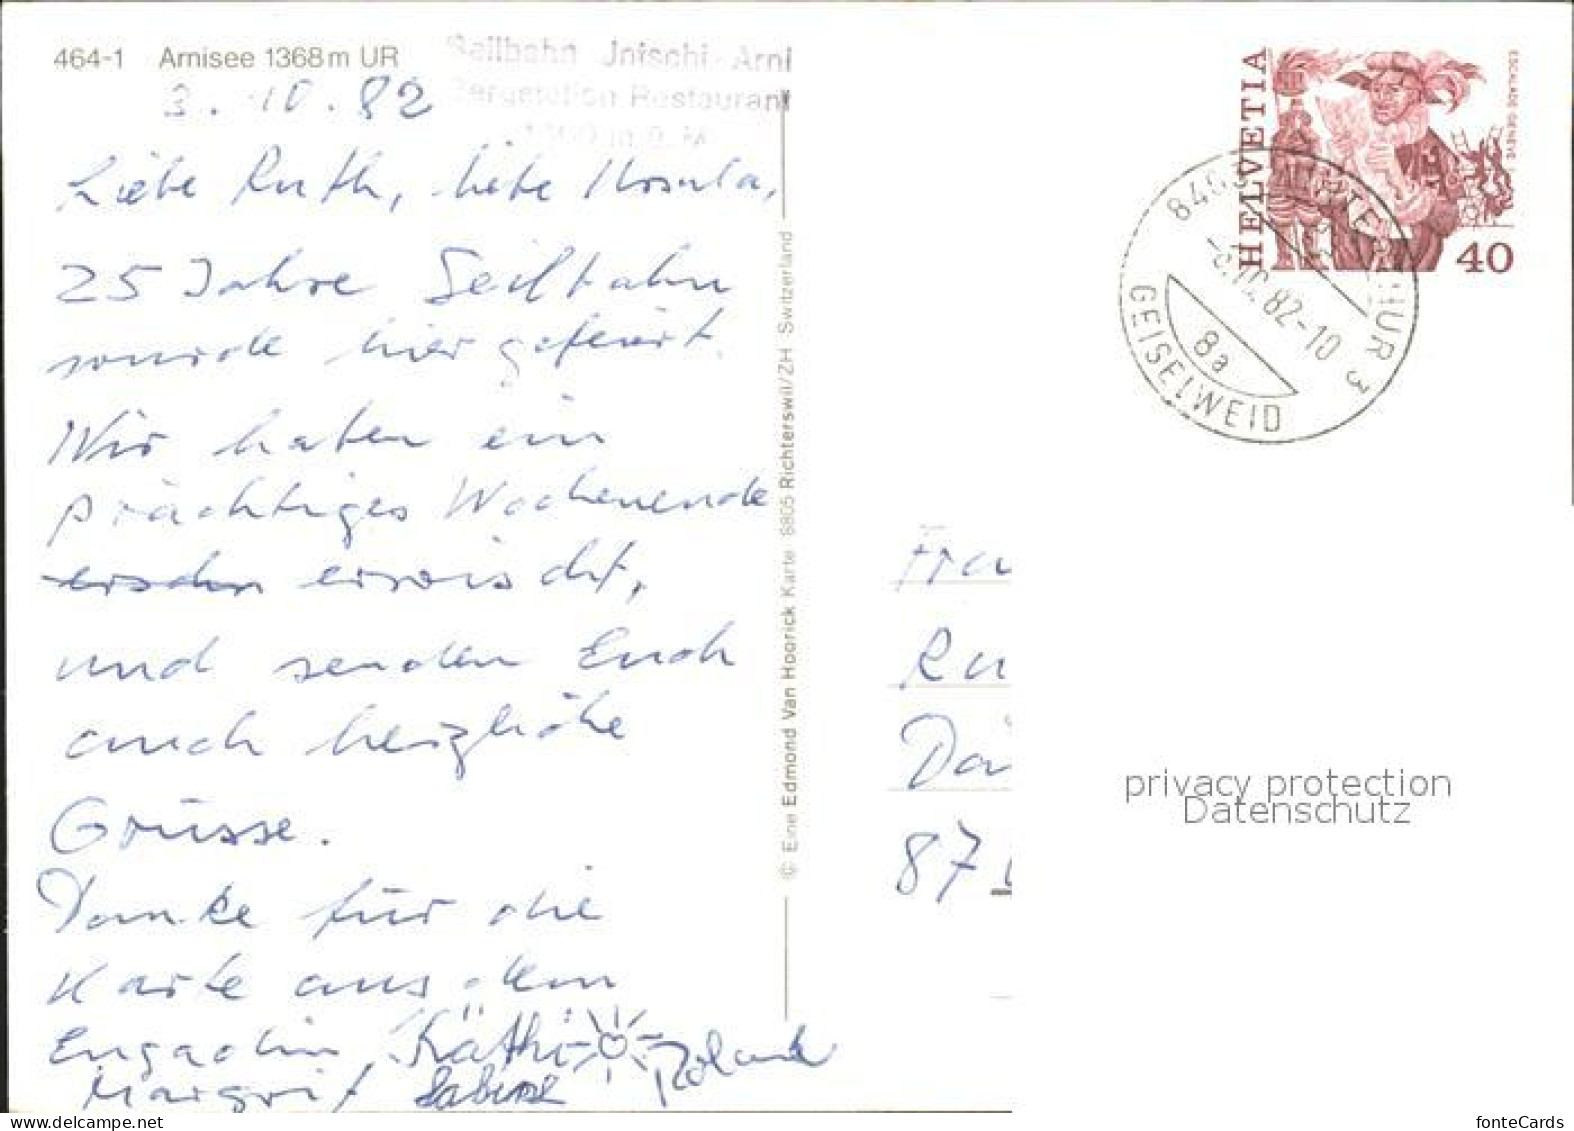 464-1 Arnisee 1368 m UR
Seilbahn Jntschi-Arni
Bergstation Restaurant
3. 10. 82
Liebe Ruth, liebe Ursula,
25 Jahre Seilbahn
wurde hier gefeiert.
Wir haben ein
prächtiges Wochenende
erwischt,
und senden Euch
auch herzliche
Grüsse.
Danke für die
Karte aus dem
Engadin Käthi Roland
Margrit Sabine
© Eine Edmond Van Hoorick Karte 8805 Richterswil/ZH Switzerland
HELVETIA
ESCALADE GENEVE
40
WINTERTHUR 3
82-10
8a
GEISELWEID
Frau
Ru
Dä
87
privacy protection
Datenschutz
www.delcampe.net
fonteCards